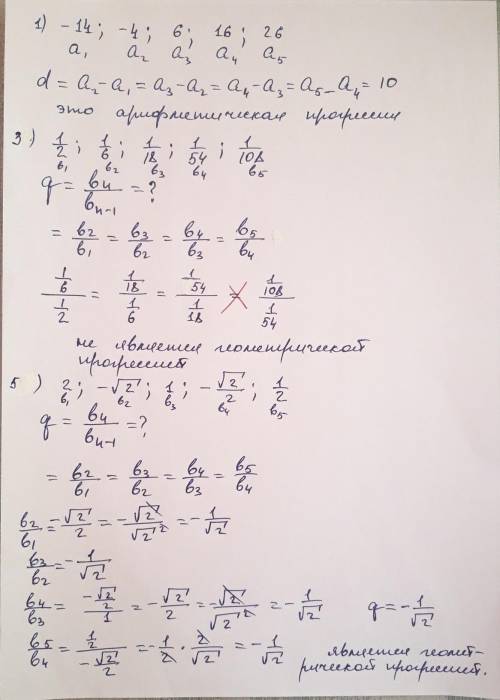 1) -14; -4; 6; 16; 26
a₁ a₂ a₃ a₄ a₅
d = a₂-a₁ = a₃-a₂ = a₄-a₃ = a₅-a₄ = 10
это арифметическая прогрессия
3) 1/2; 1/6; 1/18; 1/54; 1/108
в₁ в₂ в₃ в₄ в₅
q = вn/вn-1 = ?
= в₂/в₁ = в₃/в₂ = в₄/в₃ = в₅/в₄
(1/6)/(1/2) = (1/18)/(1/6) = (1/54)/(1/18) = (1/108)/(1/54)
не является геометрической
прогрессией
5) 2; -√2; 1; -√2/2; 1/2
в₁ в₂ в₃ в₄ в₅
q = вn/вn-1 = ?
= в₂/в₁ = в₃/в₂ = в₄/в₃ = в₅/в₄
в₂/в₁ = -√2/2 = -√2/√2² = -1/√2
в₃/в₂ = -1/√2
в₄/в₃ = (-√2/2)/1 = -√2/2 = -√2/√2² = -1/√2 q = -1/√2
в₅/в₄ = (1/2)/(-√2/2) = -1/2 · 2/√2 = -1/√2 является геомет-
рической прогрессией.